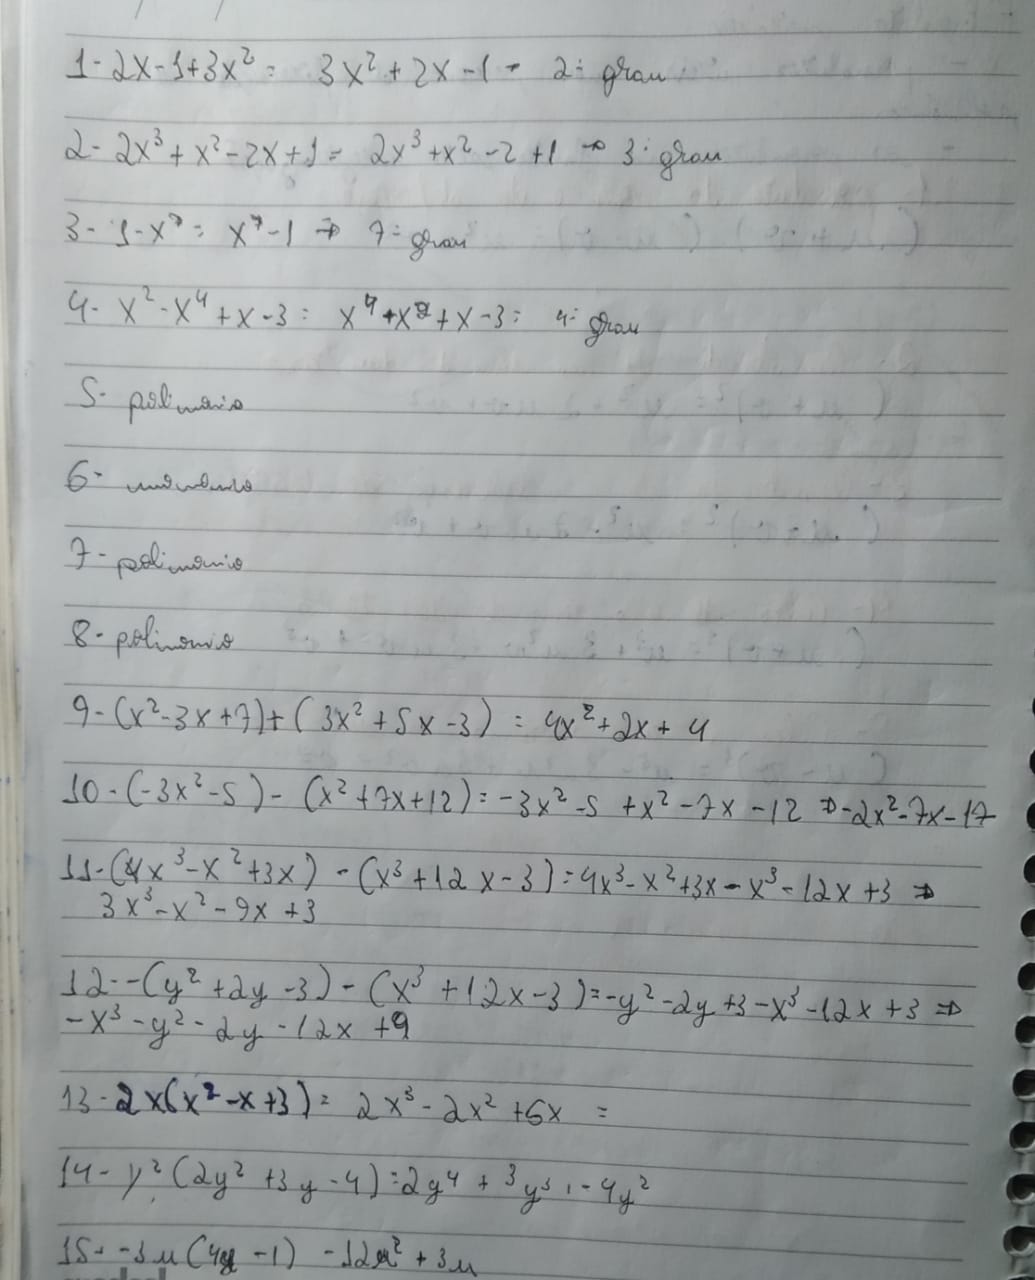 1- 2x-1+3x² = 3x²+2x-1 - 2º grau
2- 2x³+x²-2x+1 = 2x³+x²-2+1 → 3º grau
3- 1-x⁷ = x⁷-1 ⇒ 7º grau
4- x²-x⁴+x-3 = x⁴+x²+x-3 = 4º grau
5- polinomio
6- monomio
7- polinomio
8- polinomio
9-(x²-3x+7)+(3x²+5x-3) = 4x²+2x+4
10-(-3x²-5)-(x²+7x+12)=-3x²-5+x²-7x-12 ⇒-2x²-7x-17
11-(4x³-x²+3x)-(x³+12x-3)=4x³-x²+3x-x³-12x+3 ⇒
3x³-x²-9x+3
12--(y²+2y-3)-(x³+12x-3)=-y²-2y+3-x³-12x+3 ⇒
-x³-y²-2y-12x+9
13-2x(x²-x+3)= 2x³-2x²+6x =
14-y²(2y²+3y-4)=2y⁴+3y³-4y²
15- -3u(4u-1) -12u²+3u